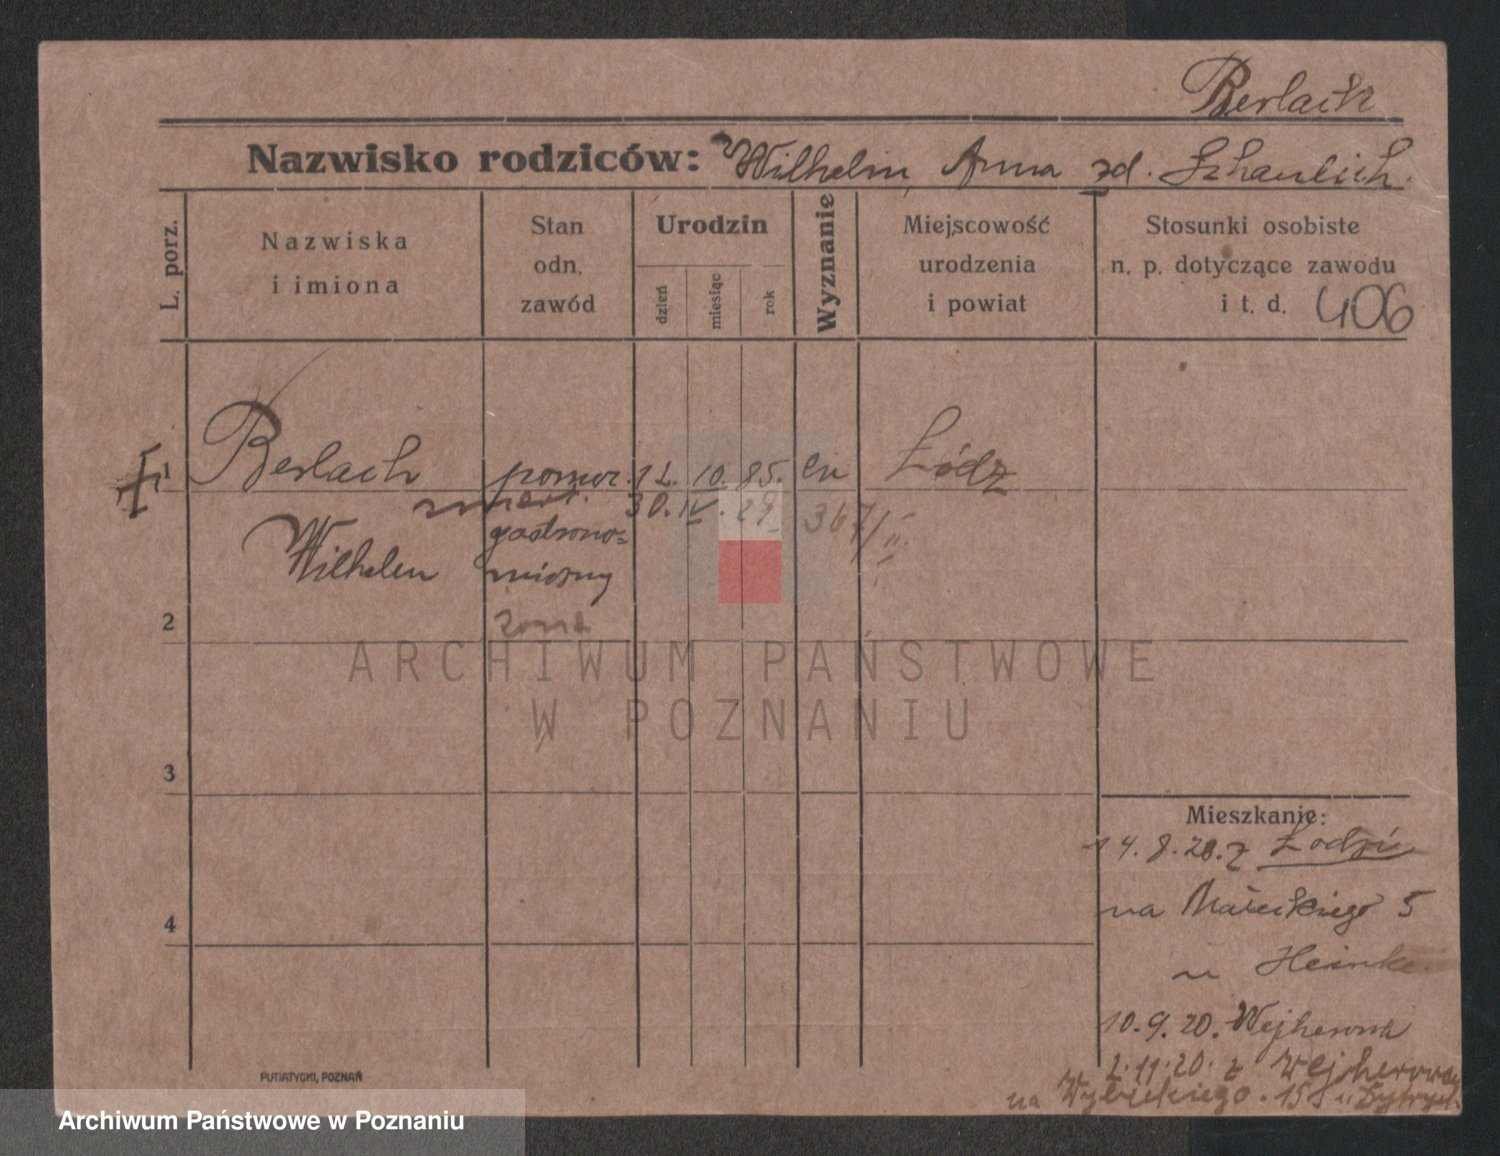 Berlach
Nazwisko rodziców: Wilhelm, Anna zd.
L. porz.
Nazwiska
i imiona
Stan
odn.
zawód
Urodzin
dzień
miesiąc
rok
Wyznanie
Miejscowość
urodzenia
i powiat
Stosunki osobiste
n. p. dotyczące zawodu
i t. d. 406
1 Berlach pomoc. 12. 10. 85. ew Łódz
zmarł. 30. IV. 29 367/II.
gastrono=
Wilhelm miczny
2 żona
3
4
Mieszkanie:
14. 8. 20. z Łodzi
na Małeckiego 5
u Heinke
10. 9. 20. Wejherowa
2. 11. 20. z Wejherowa
na Wybickiego. 15 u
PUTIATYCKI, POZNAŃ
ARCHIWUM PAŃSTWOWE
W POZNANIU
Archiwum Państwowe w Poznaniu